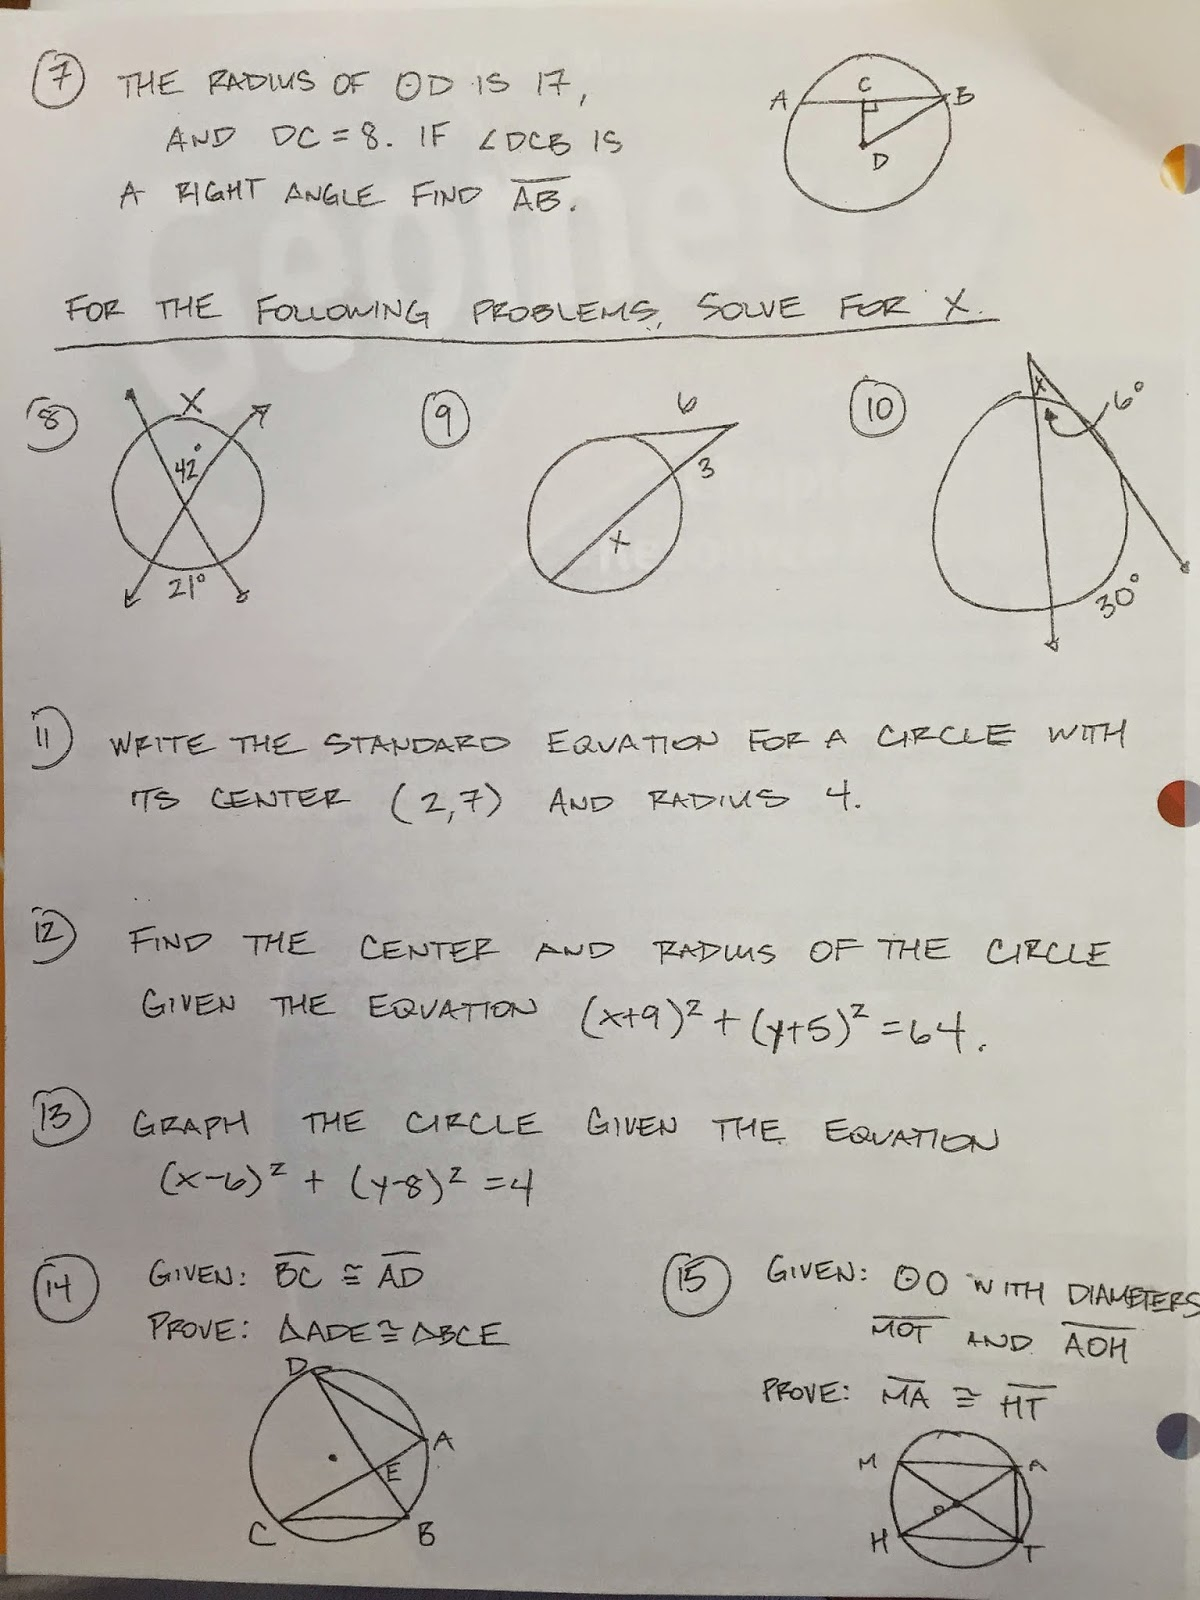 7 THE RADIUS OF ⊙D IS 17,
AND DC = 8. IF ∠DCB IS
A RIGHT ANGLE FIND AB.
A C B
D
FOR THE FOLLOWING PROBLEMS, SOLVE FOR X.
8 X
42°
21°
9 6
3
X
10 X 6°
30°
11 WRITE THE STANDARD EQUATION FOR A CIRCLE WITH
ITS CENTER (2,7) AND RADIUS 4.
12 FIND THE CENTER AND RADIUS OF THE CIRCLE
GIVEN THE EQUATION (x+9)² + (y+5)² = 64.
13 GRAPH THE CIRCLE GIVEN THE EQUATION
(x-6)² + (y-8)² = 4
14 GIVEN: BC ≅ AD
PROVE: △ADE ≅ △BCE
D
A
E
C B
15 GIVEN: ⊙O WITH DIAMETERS
MOT AND AOH
PROVE: MA ≅ HT
M A
O
H T
Geometry